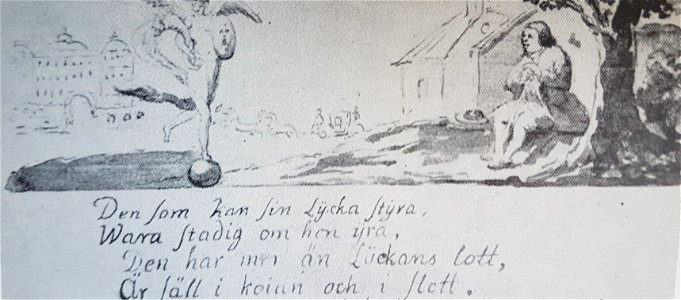 Den som kan sin Lÿcka stÿra,
Wara stadig om hon ÿra,
Den har mer än Lÿckans lott,
Är säll i kojan och i slott.